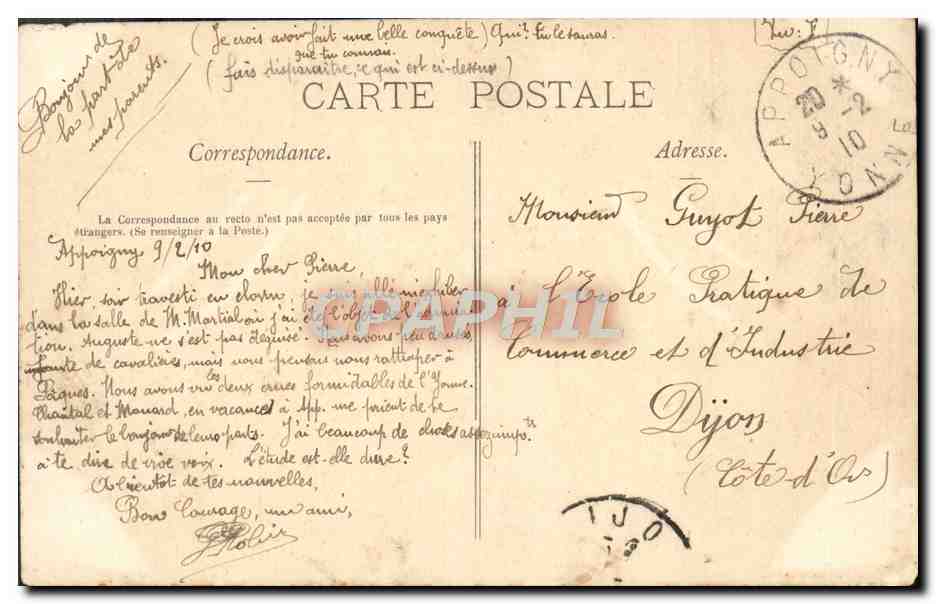 (Je crois avoir fait une belle conquête) Qui? tu le sauras.
que tu connais.
(fais disparaître, ce qui est ci-dessus)
Bonjour de
la part de
mes parents.
CARTE POSTALE
APPOIGNY
20 *
9 -2
10
YONNE
Correspondance.
Adresse.
La Correspondance au recto n'est pas acceptée par tous les pays
étrangers. (Se renseigner à la Poste.)
Appoigny 9/2/10
Mon cher Pierre,
Hier soir travesti en clown, je suis allé m'exhiber
dans la salle de M. Martial où j'ai été l'objet de l'admira-
tion. Auguste ne s'est pas déguisé. Nous avons peu dansé,
faute de cavalières, mais nous pensons nous rattraper à
Pâques. Nous avons vu les deux crues formidables de l'Yonne.
Chantal et Monard, en vacances à App. me prient de te
souhaiter le bonjour de leurs parts. J'ai beaucoup de choses assez imp.tes
à te dire de vive voix. L'étude est-elle dure?
A bientôt de tes nouvelles,
Bon Courage, un ami,
Monsieur Guyot Pierre
à l'École Pratique de
Commerce et d'Industrie
Dijon
(Côte-d'Or)
DIJO
CPAPHIL